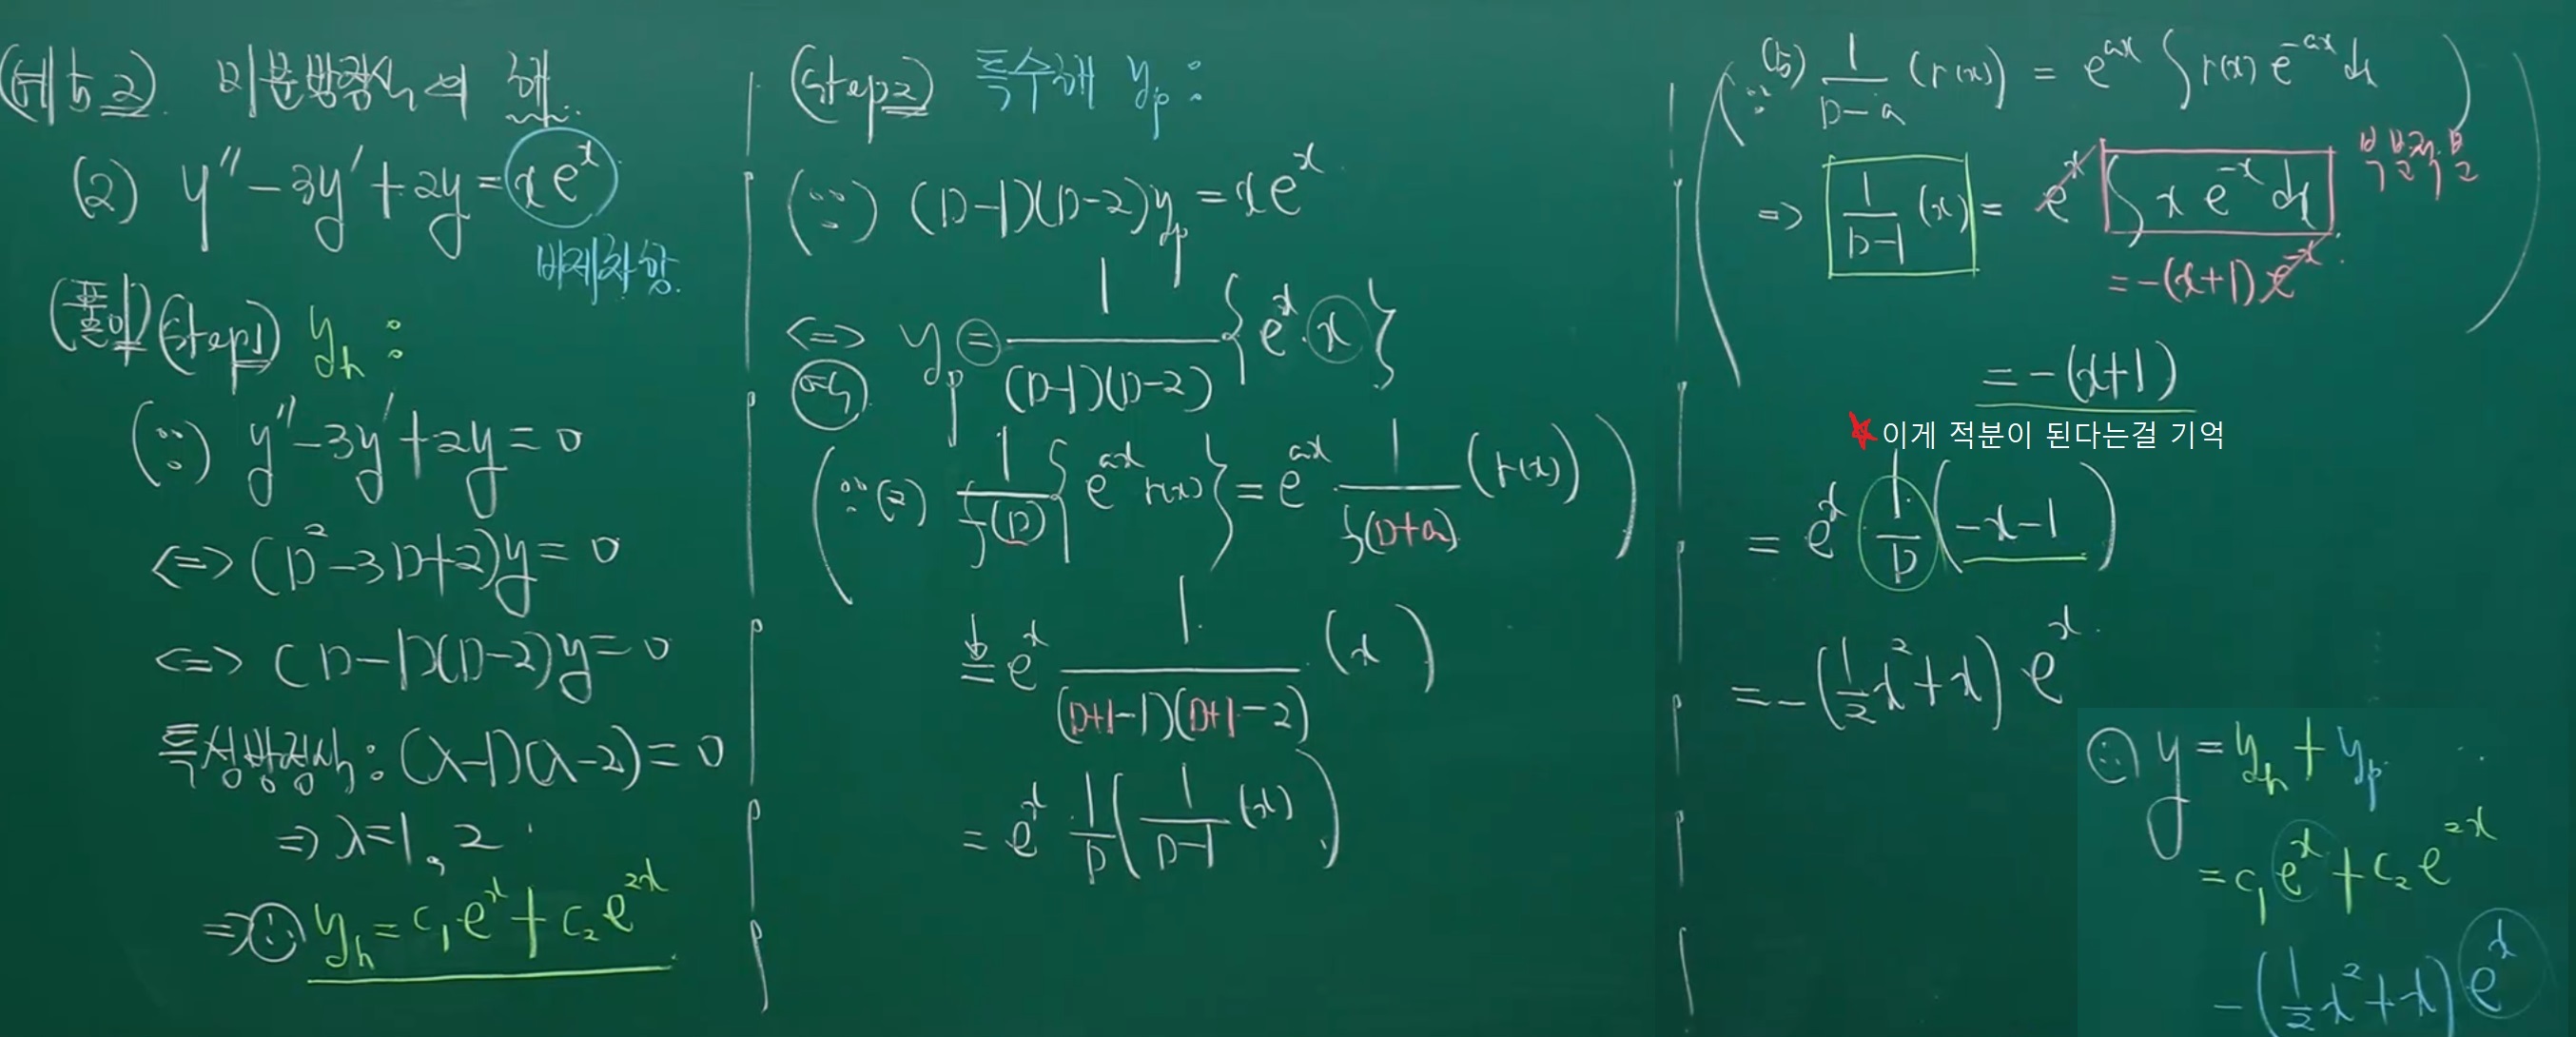 (예제 2) 미분방정식의 해
(2) y'' - 3y' + 2y = xe^x
비제차항.
(풀이) (step1) y_h :
(∵) y'' - 3y' + 2y = 0
<=> (D² - 3D + 2)y = 0
<=> (D-1)(D-2)y = 0
특성방정식 : (λ-1)(λ-2) = 0
=> λ = 1, 2
=> ∴ y_h = c₁e^x + c₂e^{2x}
(step2) 특수해 y_p :
(∵) (D-1)(D-2)y_p = xe^x
<=> y_p = 1/((D-1)(D-2)) {e^x · x}
(∵(2) 1/f(D) {e^{ax} r(x)} = e^{ax} 1/f(D+a) (r(x)))
= e^x 1/((D+1-1)(D+1-2)) (x)
= e^x 1/D (1/(D-1) (x))
(∵(5) 1/(D-a) (r(x)) = e^{ax} ∫ r(x) e^{-ax} dx)
=> 1/(D-1) (x) = e^x ∫ x e^{-x} dx
= -(x+1) e^{-x}
= -(x+1)
이게 적분이 된다는걸 기억
= e^x 1/D (-x-1)
= -(1/2 x² + x) e^x
∴ y = y_h + y_p
= c₁e^x + c₂e^{2x}
- (1/2 x² + x) e^x